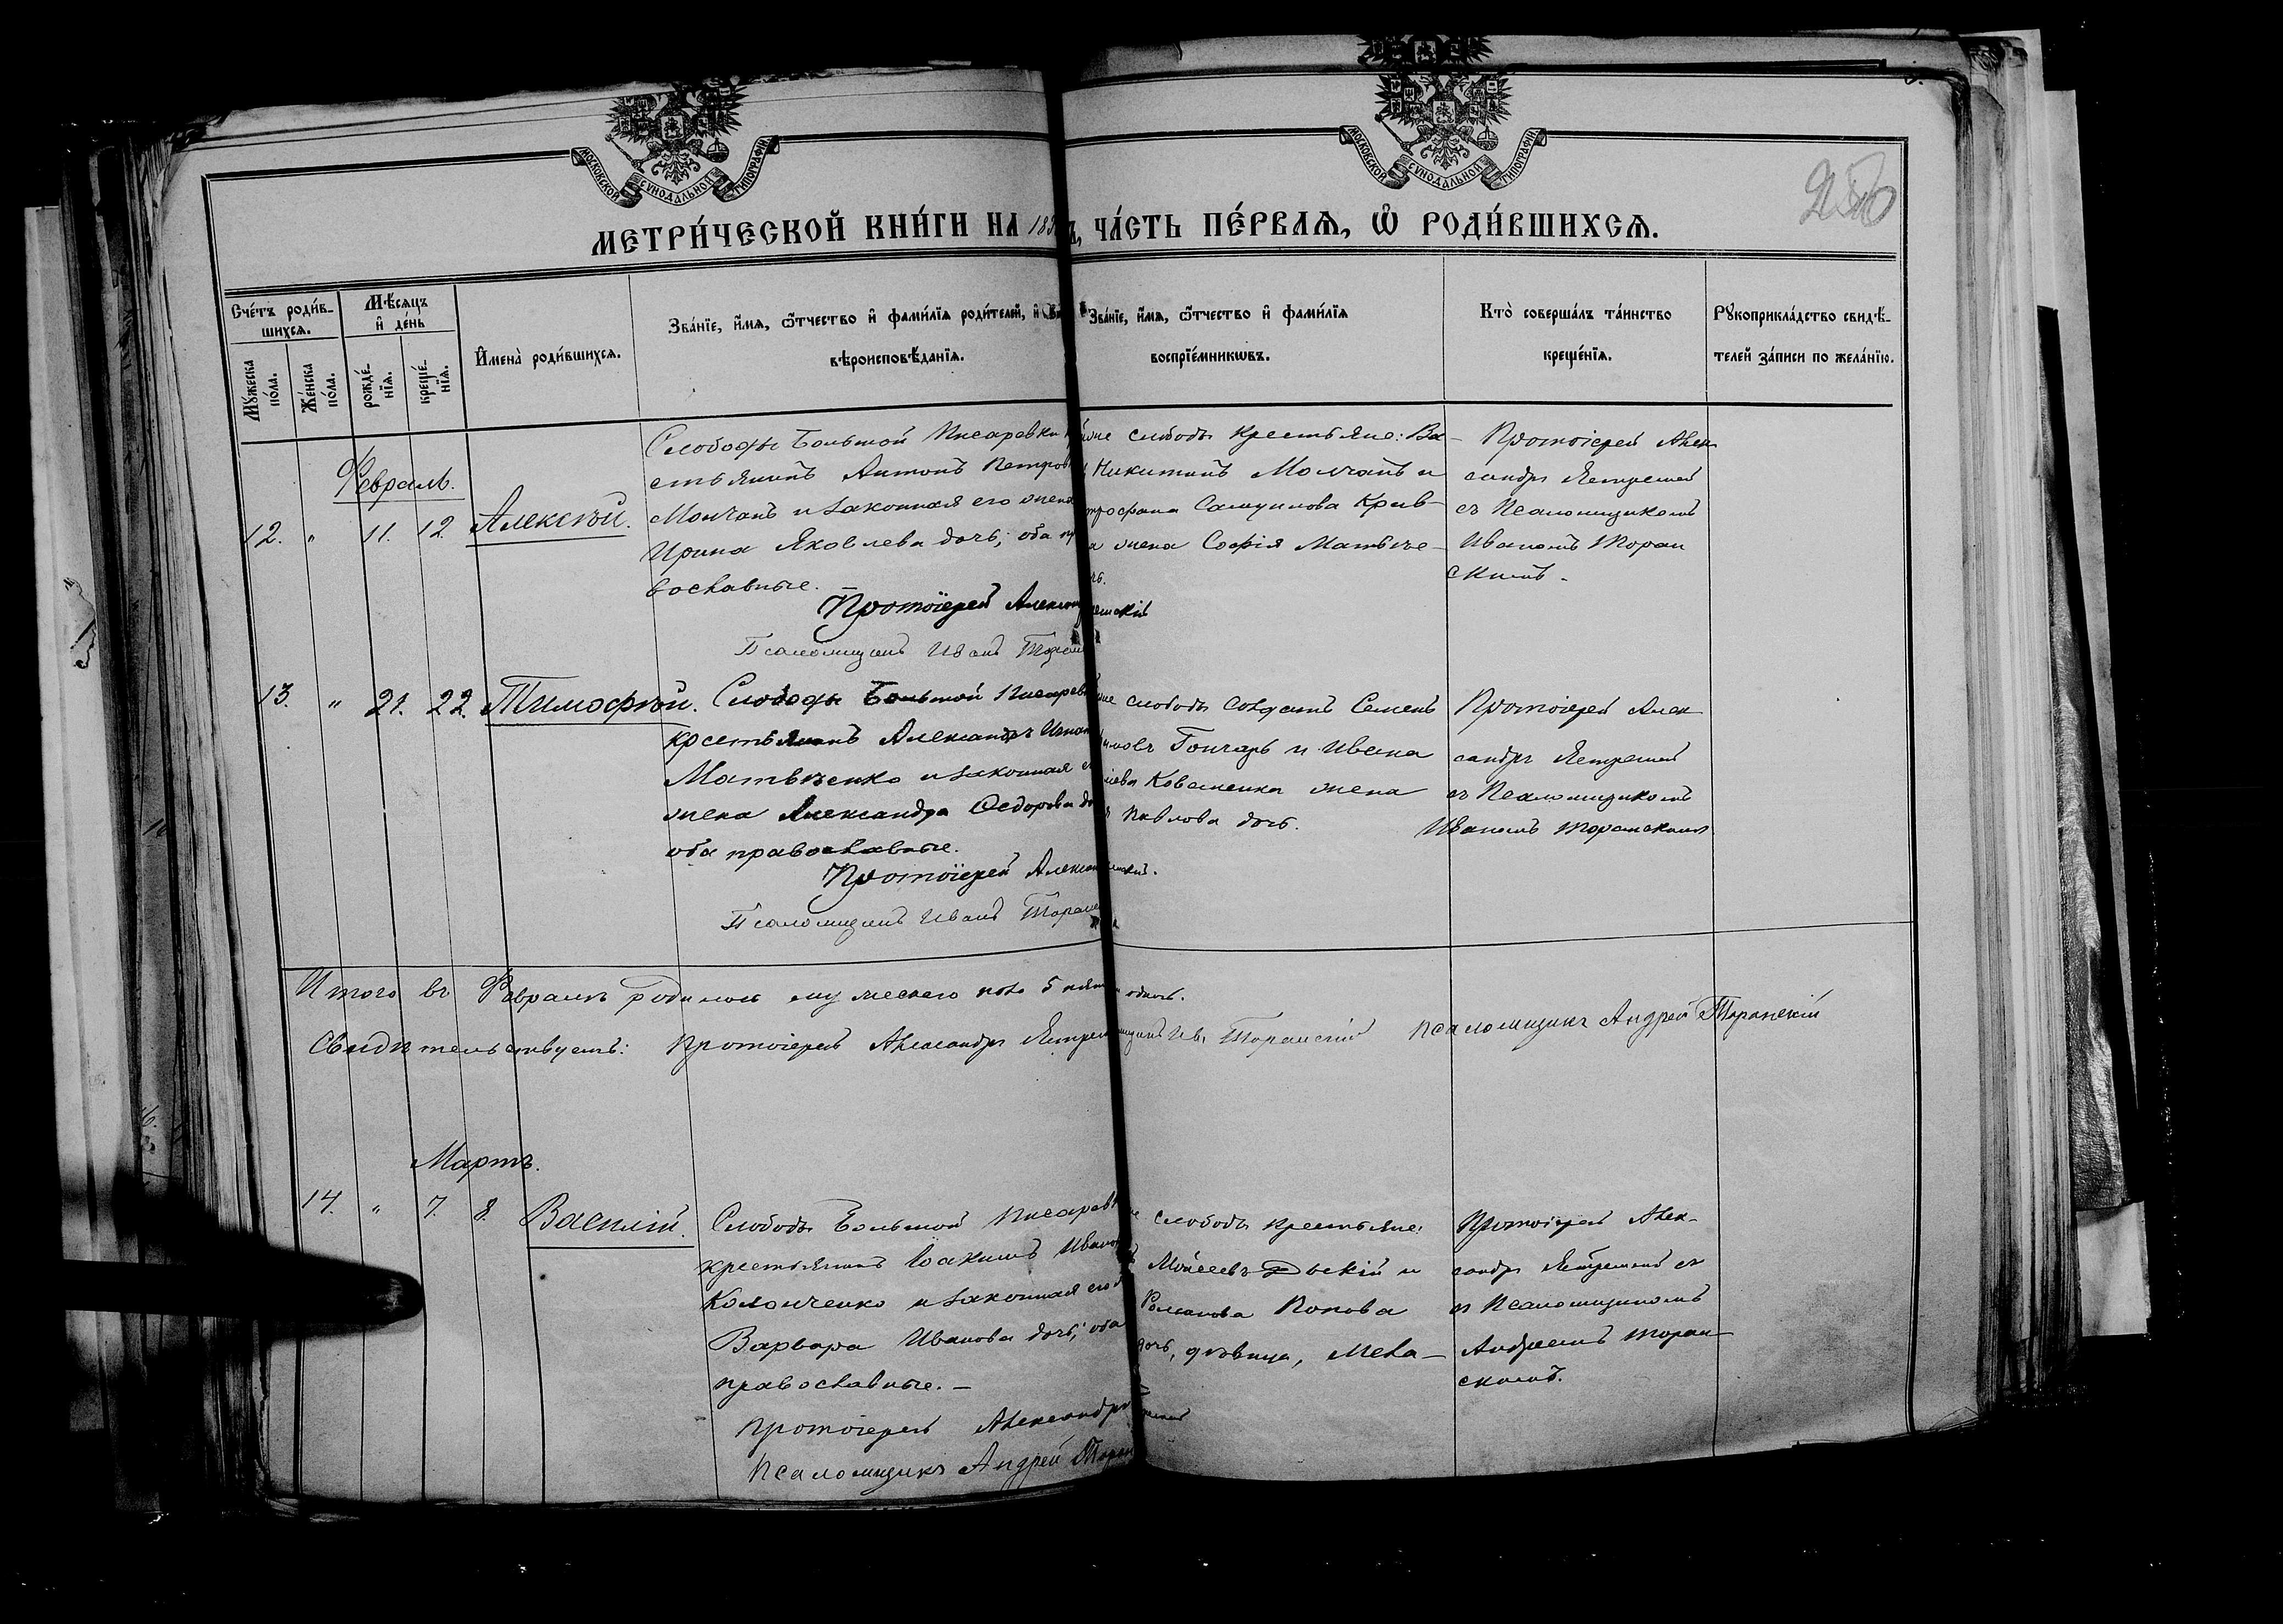 МОСКОВСКОЙ СѴНОДАЛЬНОЙ ТИПОГРАФІИ
МОСКОВСКОЙ СѴНОДАЛЬНОЙ ТИПОГРАФІИ
МЕТРИ́ЧЕСКОЙ КНИ́ГИ НА 18
Ч́АСТЬ ПЕ́РВАѦ, Ѡ҆ РОДИ́ВШИХСѦ.
Сче́тъ роди́в-
шихсѧ.
Мꙋ́жеска по́ла.
Же́нска по́ла.
Мѣ́сѧцъ
и҆ де́нь
рожде́-
нїѧ.
креще́-
нїѧ.
И҆мена̀ роди́вшихсѧ.
Зва́нїе, и҆́мѧ, ѻ҆́тчество и҆ фами́лїѧ роди́телей, и҆
вѣроисповѣ́данїѧ.
Зва́нїе, и҆́мѧ, ѻ҆́тчество и҆ фами́лїѧ
воспрїе́мникѡвъ.
Кто̀ соверша́лъ та́инство
креще́нїѧ.
Рꙋкоприкла́дство свидѣ́-
телей за́писи по жела́нїю.
Февраль.
12. " 11. 12. Алексѣй.
Слободы Большой Писаревки
стьянинъ Антонъ Петров
Молчанъ и законная его жена
Ирина Яковлева дочь; оба пра
вославные.
Протоіерей Алекса
Псаломщикъ Иванъ Торан
слободы крестьяне: Ва-
Никитинъ Молчанъ и
трофана Самуилова Крив-
жена Софія Матвѣе-
Протоіерей Алек
сандръ Ястремскій
съ Псаломщикомъ
Иваномъ Торан
скимъ.
13. " 21. 22. Тимофей.
Слободы Большой Писарев
крестьянинъ Александръ Игнат
Матвѣенко и законная е
жена Александра Ѳедорова до
оба православные.
Протоіерей Алексан
Псаломщикъ Иванъ Торан
слободы солдатъ Семенъ
Гончаръ и Ивана
Коваленка жена
Павлова дочь.
Протоіерей Алек
сандръ Ястремскій
съ Псаломщикомъ
Иваномъ Торанскимъ
Итого въ Февралѣ родилось мужескаго пола 5
Свидѣтельствуемъ: Протоіерей Александръ Ястрем
Ив. Торанскій Псаломщикъ Андрей Торанскій
Мартъ.
14. " 7. 8. Василій.
Слободы Большой Писарев
крестьянинъ Іоакимъ Иван
Колонченко и законная его
Варвара Иванова дочь; оба
православные. —
Протоіерей Александръ
Псаломщикъ Андрей Торан
слободы крестьяне:
Моисеевъ и
Романова Попова
дочь, дѣвица, Мела-
Протоіерей Алек-
сандръ Ястремскій съ
съ Псаломщикомъ
Андреемъ Торан-
скимъ.